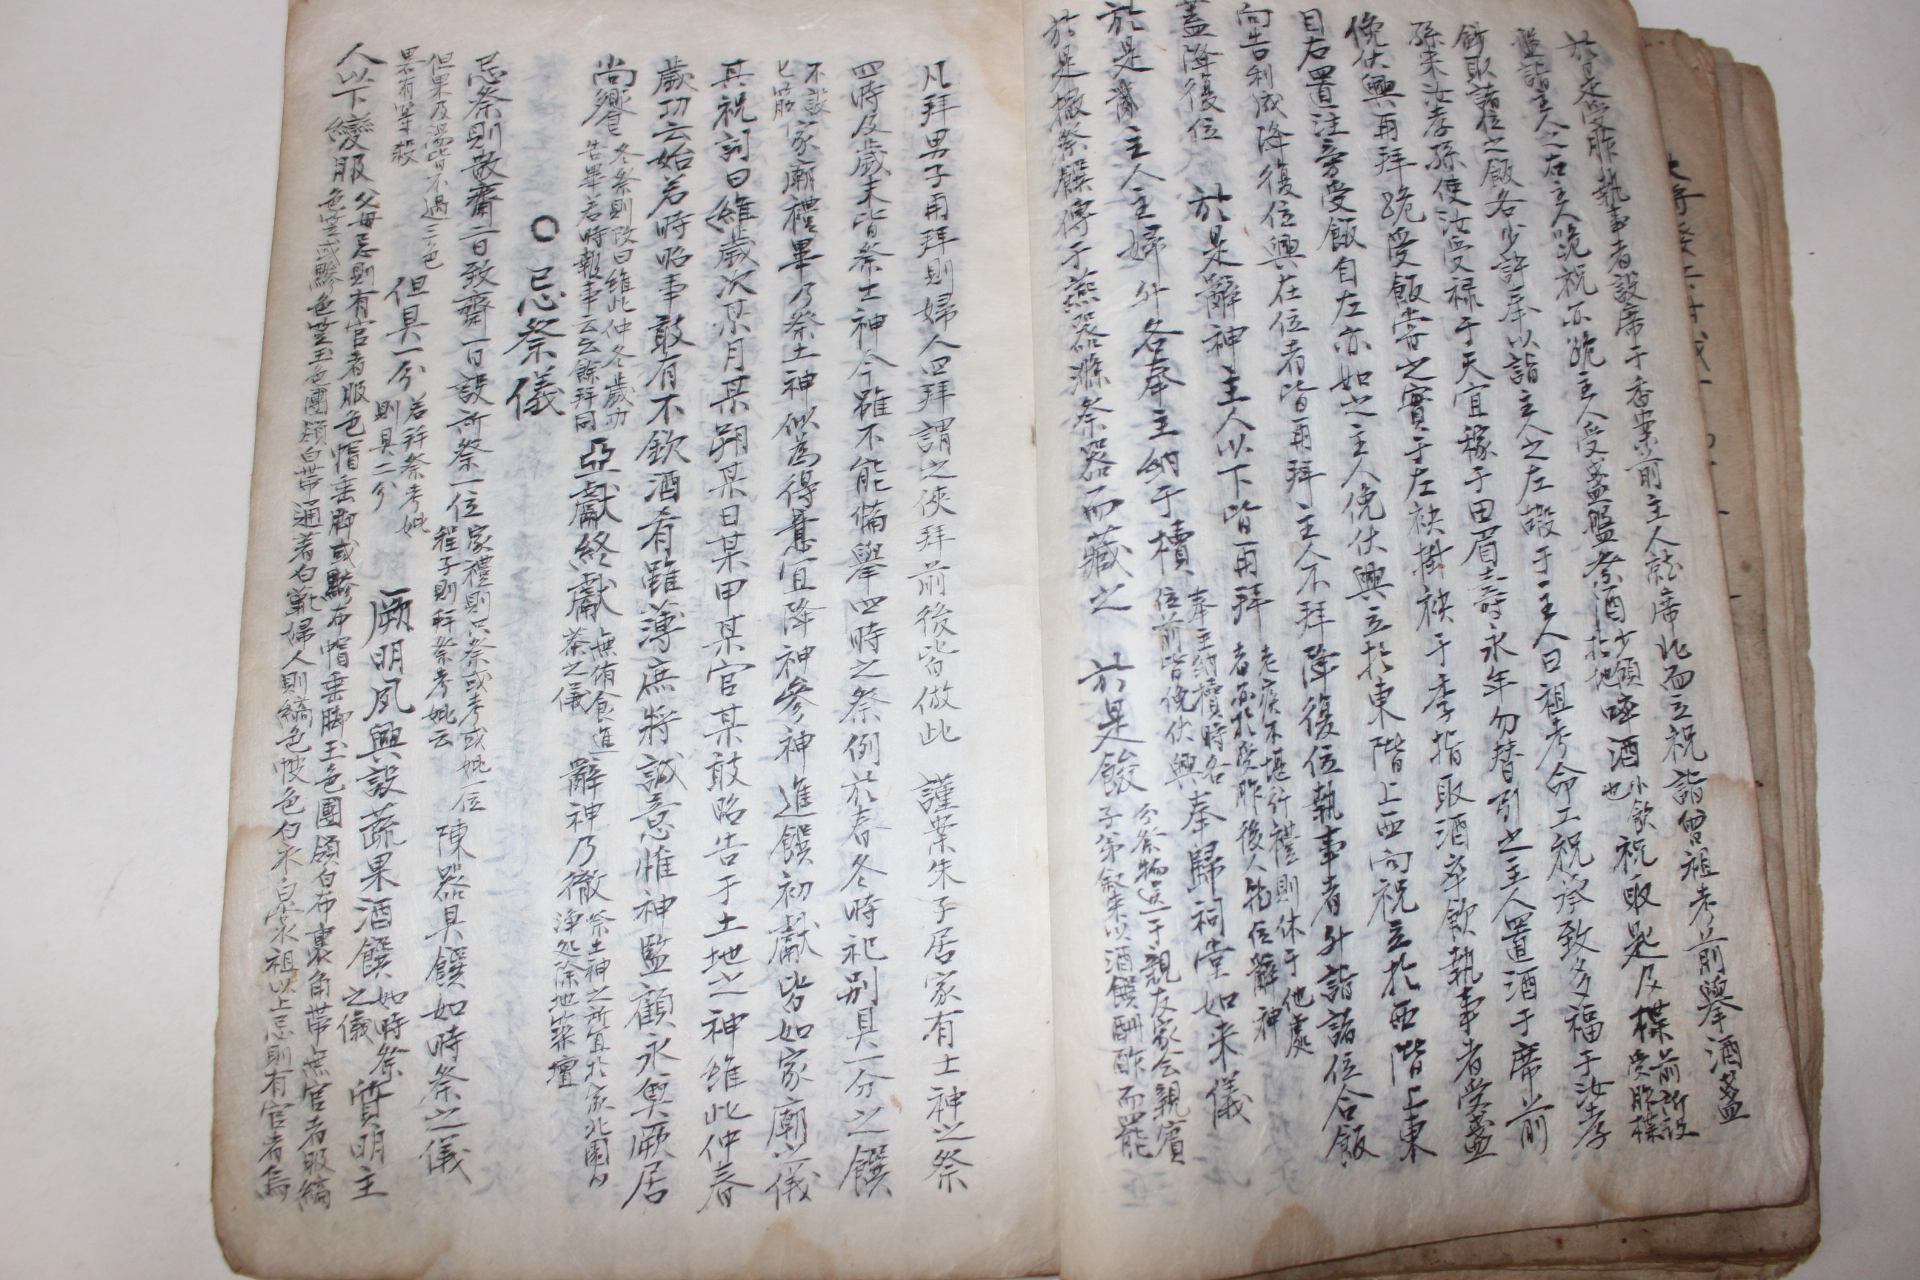 於是受胙執事者設席于香案前主人就席北面立祝詣曾祖考前擧酒盞
盤詣主人之右主人跪祝亦跪主人受盞盤祭酒少傾於地啐酒小飮也祝取匙及楪前所設受胙楪
鈔取諸位之飯各少許奉以詣主人之左嘏于主人曰祖考命工祝承致多福于汝孝
孫來汝孝孫使汝受祿于天宜稼于田眉壽永年勿替引之主人置酒于席前
俛伏興再拜跪受飯嘗之實于左袂掛袂于季指取酒卒飮執事者受盞
自右置注旁受飯自左亦如之主人俛伏興立於東階上西向祝立於西階上東
向告利成降復位興在位者皆再拜主人不拜降復位執事者升詣諸位合飯
蓋降復位　於是辭神主人以下皆再拜老疾不堪行禮則休于他處者亦於受胙後入就位辭神
於是納主主人主婦升各奉主納于櫝奉主納櫝時各位前皆俛伏興奉歸祠堂如來儀
於是撤祭饌傳于燕器滌祭器而藏之　於是餕分祭物送于親友家会親賓子弟敍來以酒饌酬酢而罷
凡拜男子再拜則婦人四拜謂之俠拜前後皆倣此　謹案朱子居家有土神之祭
四時及歲末皆祭土神今雖不能備擧四時之祭例於春冬時祀別具一分之饌
不設匕筯家廟禮畢乃祭土神似爲得意宜降神參神進饌初獻皆如家廟儀
其祝詞曰維歲次某月某朔某日某甲某官某敢昭告于土地之神維此仲春
歲功云始若時昭事敢有不欽酒肴雖薄庶將誠意惟神監顧永奠厥居
尚饗冬祭則改曰維此仲冬歲功告畢若時報事云云餘拜同亞獻終獻無侑食進茶之儀辭神乃徹祭土神之所宜於家北園內淨処除地築壇
○忌祭儀
忌祭則散齋二日致齋一日設所祭一位家禮則只祭或考或妣一位程子則幷祭考妣云陳器具饌如時祭之儀
但果及湯皆不過三色果有等殺但具一分若幷祭考妣則具二分厥明夙興設蔬果酒饌如時祭之儀質明主
人以下變服父母忌則有官者服色帽垂脚或黲布帽垂脚玉色團領白布裹角帶無官者服縞
色笠或黲色笠玉色團領白帶通着白靴婦人則縞色帔色白衣白裳祖以上忌則有官者烏